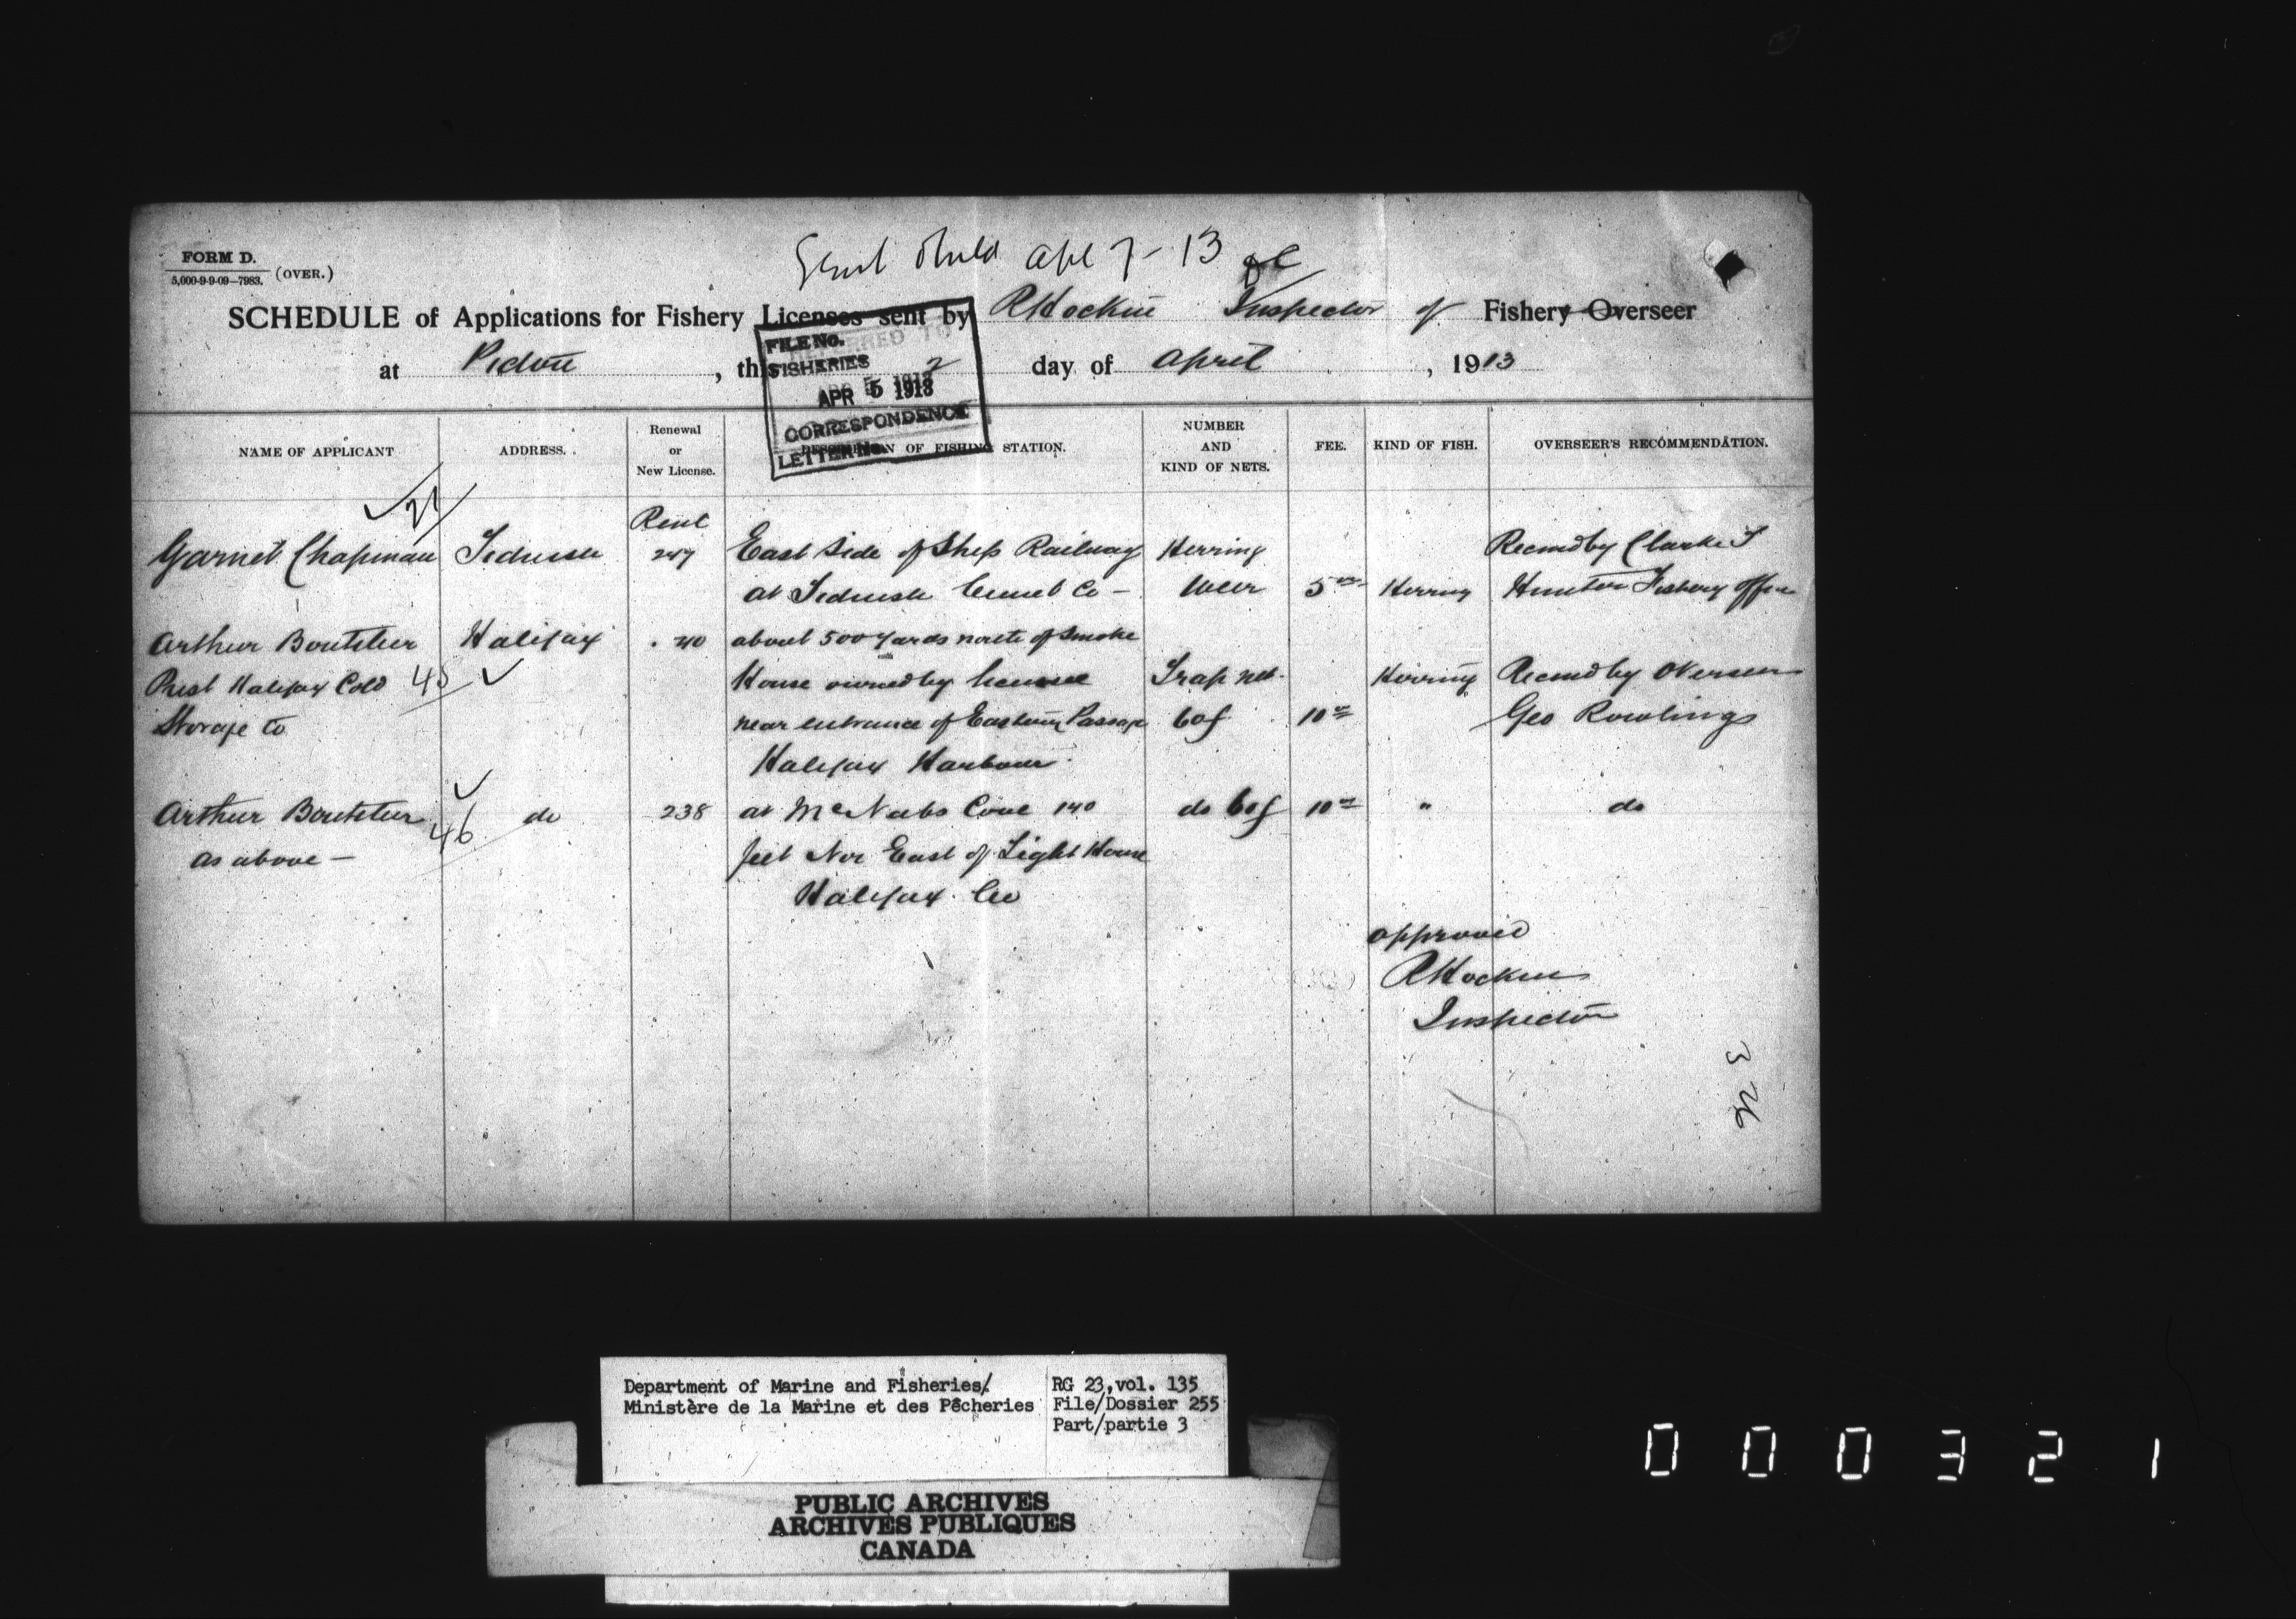 FORM D.
5,000-9-9-09—7983. (OVER.)
Sent Apl 7-13
SCHEDULE of Applications for Fishery Licenses sent by RHockin Inspector of Fishery Overseer
at Pictou, this 2 day of April, 1913
FILE No.
FISHERIES
APR 5 1913
CORRESPONDENCE
LETTER No.
NAME OF APPLICANT ADDRESS. Renewal or New License. DESCRIPTION OF FISHING STATION. NUMBER AND KIND OF NETS. FEE. KIND OF FISH. OVERSEER'S RECOMMENDATION.
21
Renl
Garnet Chapman Tidnish 247 East Side of Ship Railway Herring Recmd by Clarke S
at Tidnish Cumb Co - Weir 5 00 Herring Hunter Fishery Offer
Arthur Boutilier Halifax 40 about 500 yards north of Smoke
Prest Halifax Cold 45 House owned by licensee Trap net Herring Recmd by Overseer
Storage Co near entrance of Eastern Passage 60f 10 00 Geo Rowlings
Halifax Harbour
Arthur Boutilier 46 do 238 at McNabs Cove 140 do 60f 10 00 " do
as above — feet Nor East of Light House
Halifax Co
approved
RHockin
Inspector
Department of Marine and Fisheries/
Ministère de la Marine et des Pêcheries
RG 23, vol. 135
File/Dossier 255
Part/partie 3
PUBLIC ARCHIVES
ARCHIVES PUBLIQUES
CANADA
000321